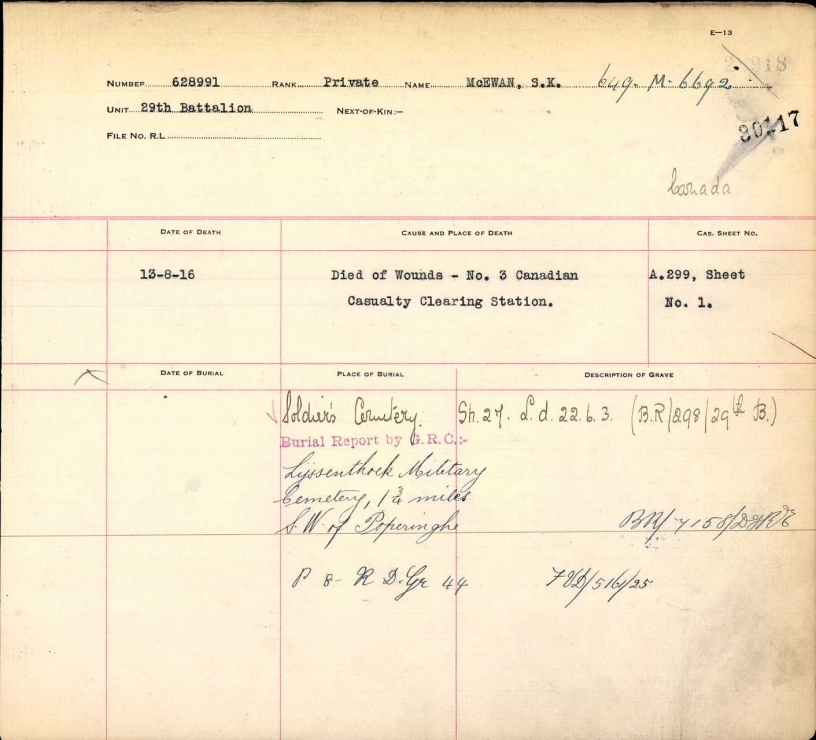 E—13
918
NUMBER 628991 RANK Private NAME McEWAN, S.K. 649-M-6692
UNIT 29th Battalion NEXT-OF-KIN:—
30117
FILE NO. R.L.
Canada
DATE OF DEATH CAUSE AND PLACE OF DEATH CAS. SHEET NO.
13-8-16 Died of Wounds - No. 3 Canadian A.299, Sheet
Casualty Clearing Station. No. 1.
DATE OF BURIAL PLACE OF BURIAL DESCRIPTION OF GRAVE
Soldier's Cemetery. Sh. 27. L. d. 22. 6. 3. (B.R/298/29th B.)
Burial Report by G.R.C:-
Lijssenthoek Military
Cemetery, 1 3/4 miles
S.W. of Poperinghe BR/7158/DGR&E
P 8- R D. Gr 44